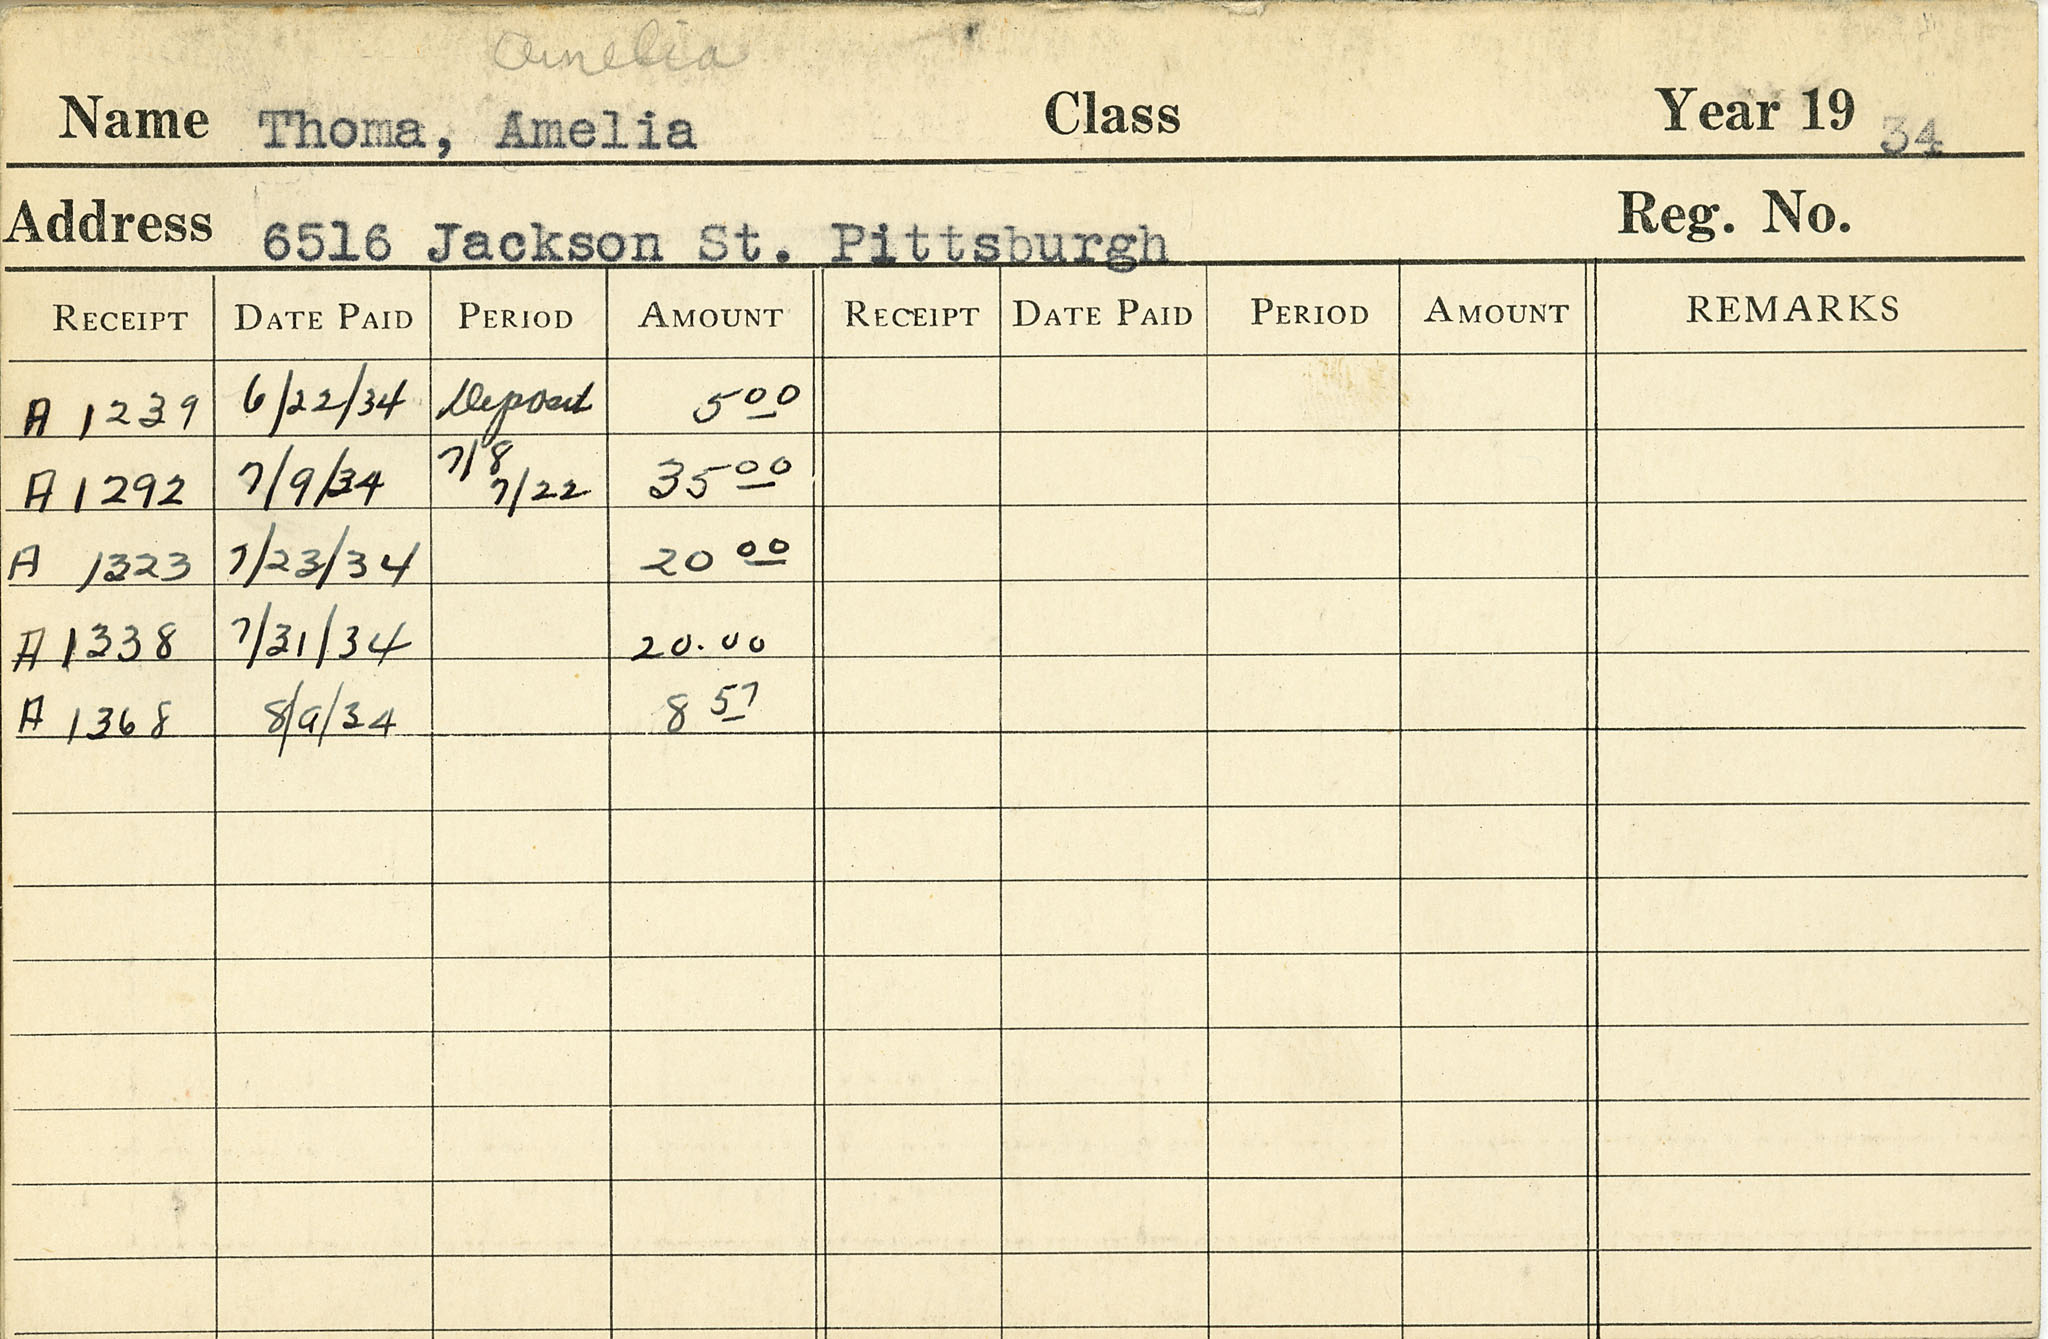 Amelia
Name Thoma, Amelia Class Year 19 34
Address 6516 Jackson St. Pittsburgh Reg. No.
RECEIPT DATE PAID PERIOD AMOUNT RECEIPT DATE PAID PERIOD AMOUNT REMARKS
A 1239 6/22/34 Deposit 5 00
A 1292 7/9/34 7/8 7/22 35 00
A 1323 7/23/34 20 00
A 1338 7/31/34 20.00
A 1368 8/9/34 8 57